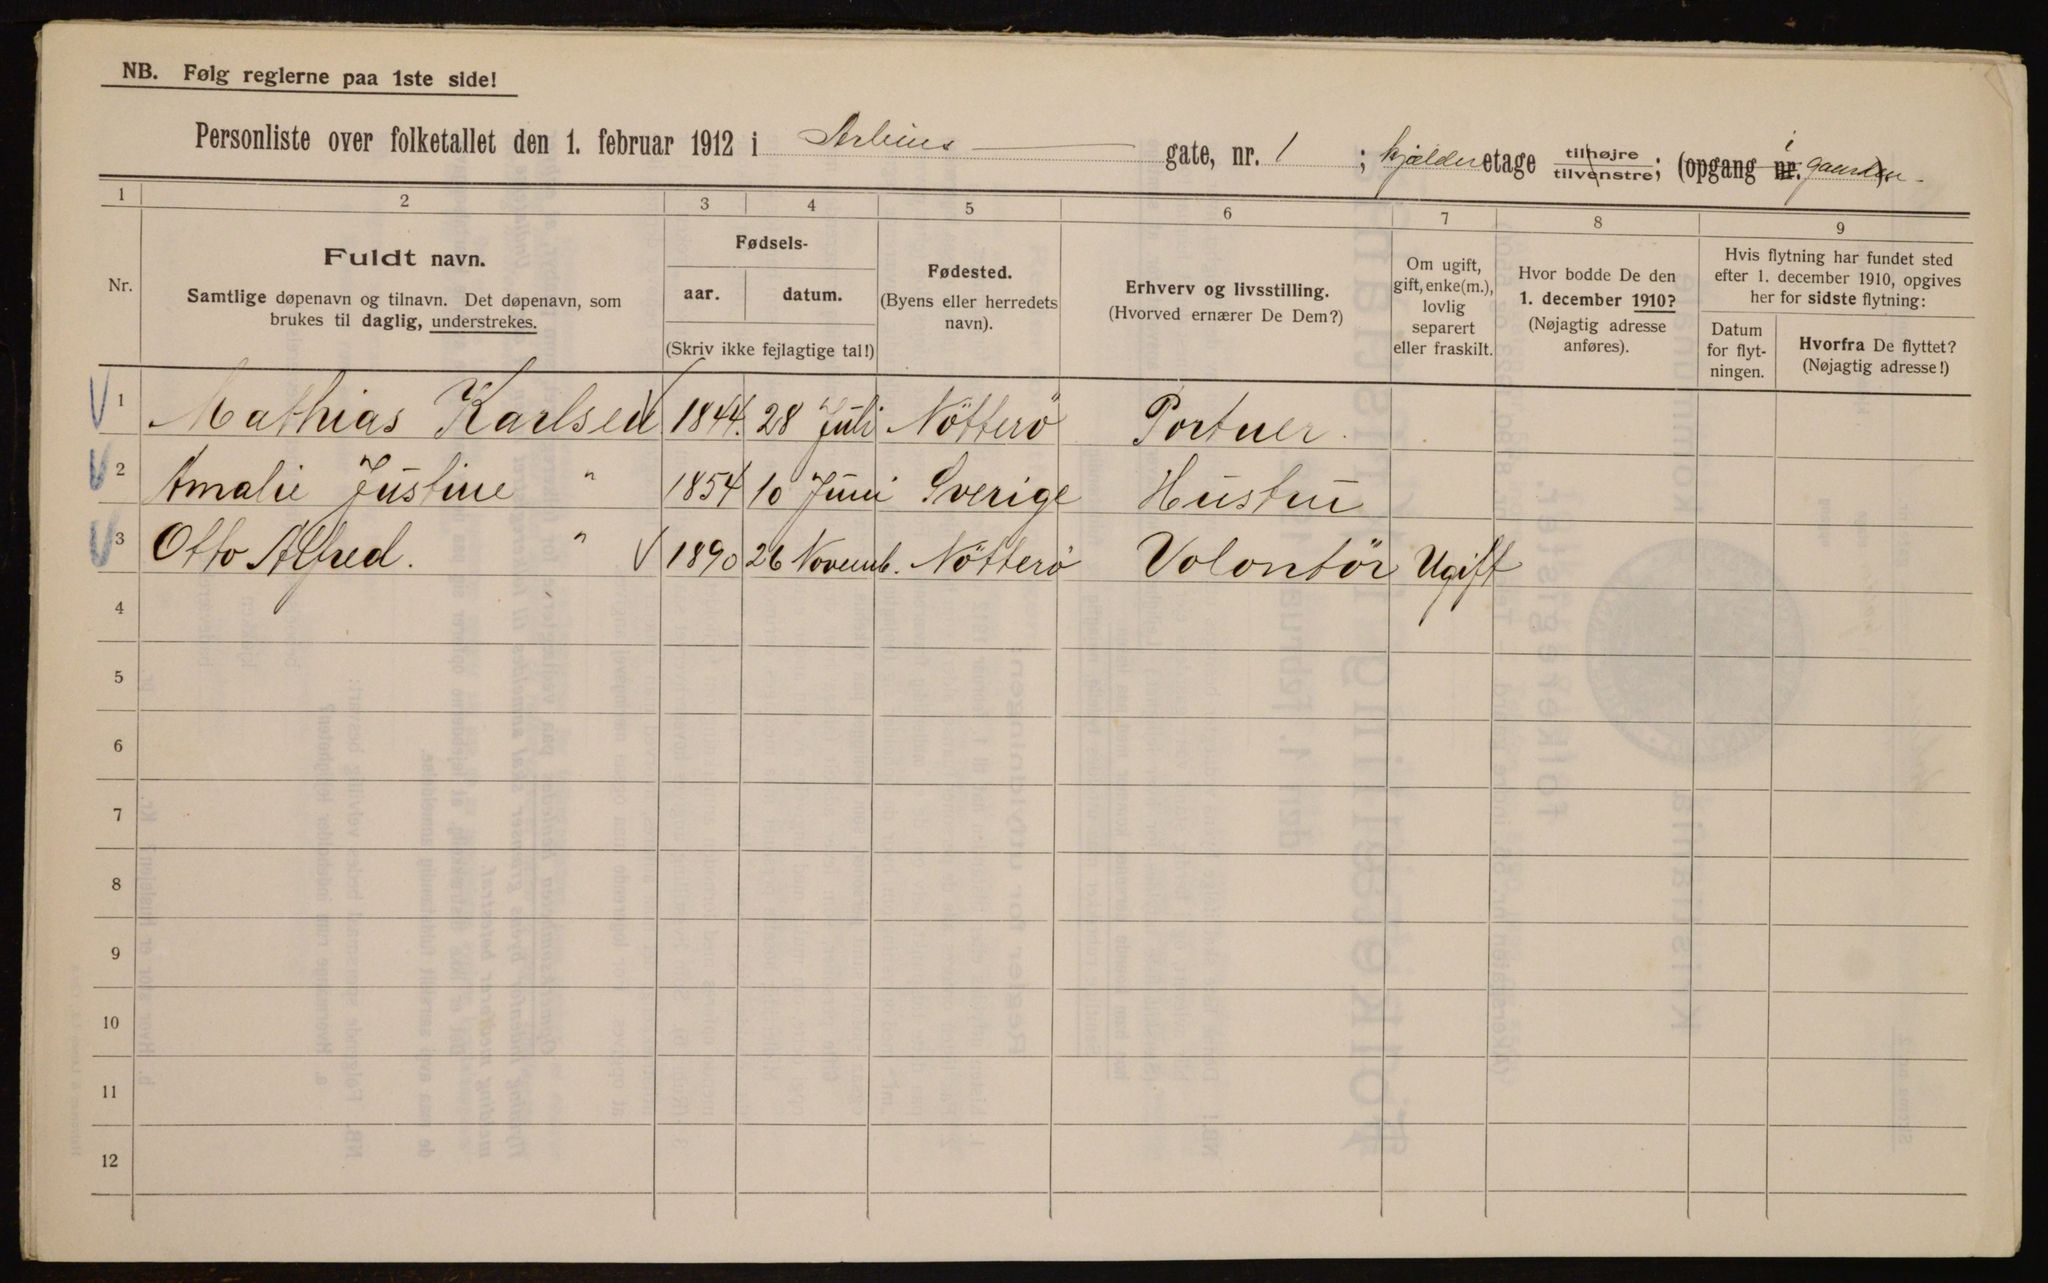 NB. Følg reglerne paa 1ste side!
Personliste over folketallet den 1. februar 1912 i Arbins gate, nr. 1 ; kjælder etage tilhøjre tilvenstre; (opgang nr. i gaarden
1 2 3 4 5 6 7 8 9
Nr.
Fuldt navn.
Samtlige døpenavn og tilnavn. Det døpenavn, som
brukes til daglig, understrekes.
Fødsels-
aar. datum.
(Skriv ikke fejlagtige tal!)
Fødested.
(Byens eller herredets
navn).
Erhverv og livsstilling.
(Hvorved ernærer De Dem?)
Om ugift,
gift, enke(m.),
lovlig
separert
eller fraskilt.
Hvor bodde De den
1. december 1910?
(Nøjagtig adresse
anføres).
Hvis flytning har fundet sted
efter 1. december 1910, opgives
her for sidste flytning:
Datum
for flyt-
ningen.
Hvorfra De flyttet?
(Nøjagtig adresse!)
1 Mathias Karlsen 1844. 28 Juli Nötterö Portner.
2 Amalie Justine " 1854 10 Juni Sverige Hustru
3 Otto Alfred. " 1890 26 Novemb. Nötterö Volontör Ugift
4
5
6
7
8
9
10
11
12